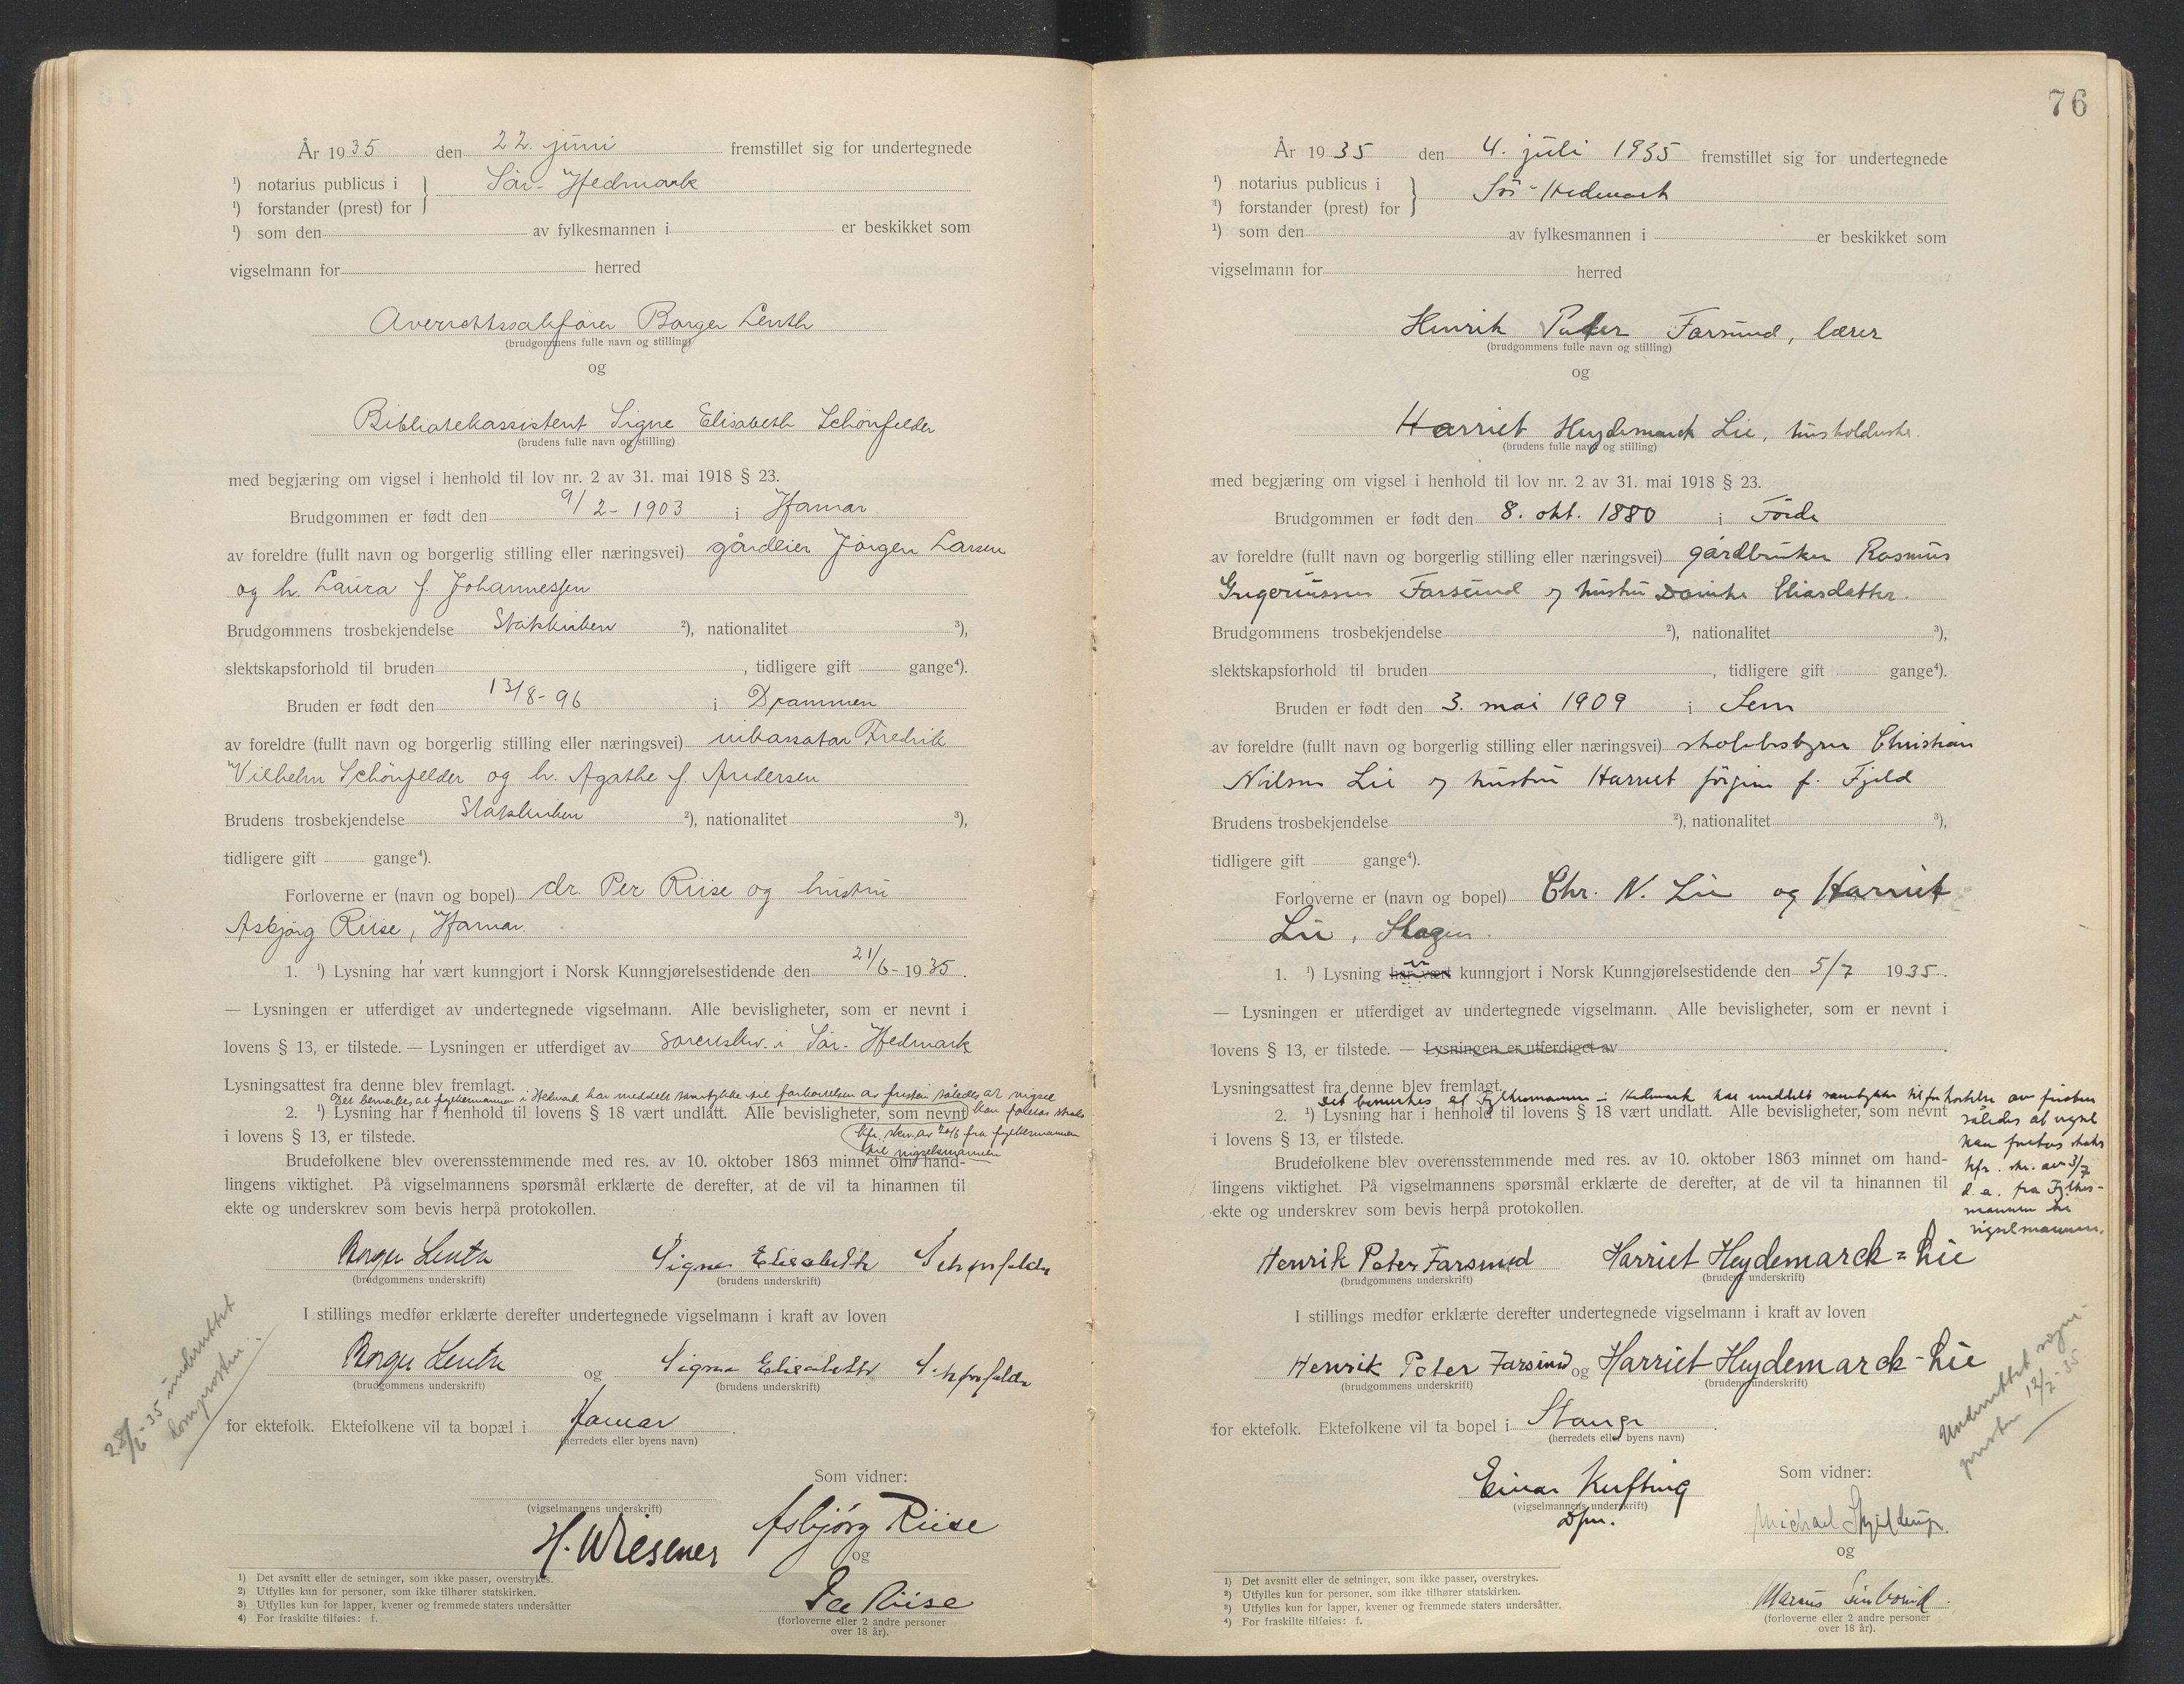 År 1935 den 22. juni fremstillet sig for undertegnede
¹) notarius publicus i } Sør-Hedmark
¹) forstander (prest) for
¹) som den av fylkesmannen i er beskikket som
vigselmann for herred
Overrettssakfører Borger Lenth
(brudgommens fulle navn og stilling)
og
Bibliotekassistent Signe Elisabeth Schönfelder
(brudens fulle navn og stilling)
med begjæring om vigsel i henhold til lov nr. 2 av 31. mai 1918 § 23.
Brudgommen er født den 9/2-1903 i Hamar
av foreldre (fullt navn og borgerlig stilling eller næringsvei) gårdeier Jörgen Larsen
og h. Laura f. Johannessen
Brudgommens trosbekjendelse Statskirken ²), nationalitet ³),
slektskapsforhold til bruden , tidligere gift gange⁴).
Bruden er født den 13/8-96 i Drammen
av foreldre (fullt navn og borgerlig stilling eller næringsvei) inkassator Fredrik
Vilhelm Schönfelder og h. Agathe f. Andersen
Brudens trosbekjendelse Statskirken ²), nationalitet ³),
tidligere gift gange⁴).
Forloverne er (navn og bopel) dr. Per Riise og hustru
Asbjörg Riise, Hamar.
1. ¹) Lysning har vært kunngjort i Norsk Kunngjørelsestidende den 21/6-1935.
— Lysningen er utferdiget av undertegnede vigselmann. Alle bevisligheter, som er nevnt i
lovens § 13, er tilstede. — Lysningen er utferdiget av sorenskr. i Sør-Hedmark
Lysningsattest fra denne blev fremlagt.
Det bemerkes, at fylkesmannen i Hedmark har meddelt samtykke til forkortelse av fristen således at vigsel
2. ¹) Lysning har i henhold til lovens § 18 vært undlatt. Alle bevisligheter, som nevnt kan foretas straks
i lovens § 13, er tilstede. kfr. skr. av 20/6 fra fylkesmannen
til vigselsmannen
Brudefolkene blev overensstemmende med res. av 10. oktober 1863 minnet om hand-
lingens viktighet. På vigselmannens spørsmål erklærte de derefter, at de vil ta hinannen til
ekte og underskrev som bevis herpå protokollen.
Borger Lenth Signe Elisabeth Schönfelder
(brudgommens underskrift) (brudens underskrift)
I stillings medfør erklærte derefter undertegnede vigselmann i kraft av loven
Borger Lenth og Signe Elisabeth Schönfelder
(brudgommens underskrift) (brudens underskrift)
for ektefolk. Ektefolkene vil ta bopæl i Hamar.
(herredets eller byens navn)
28/6-35 underrettet
domprosten.
Som vidner:
(vigselmannens underskrift)
H. Wiesener Asbjörg Riise
og
Per Riise
(forloverne eller 2 andre personer
over 18 år).
1) Det avsnitt eller de setninger, som ikke passer, overstrykes.
2) Utfylles kun for personer, som ikke tilhører statskirken.
3) Utfylles kun for lapper, kvener og fremmede staters undersåtter
4) For fraskilte tilføies: f.
76
År 1935 den 4. juli 1935 fremstillet sig for undertegnede
¹) notarius publicus i } Sör-Hedmark
¹) forstander (prest) for
¹) som den av fylkesmannen i er beskikket som
vigselmann for herred
Henrik Peter Farsund, lærer
(brudgommens fulle navn og stilling)
og
Harriet Heydemarck Lie, husholderske.
(brudens fulle navn og stilling)
med begjæring om vigsel i henhold til lov nr. 2 av 31. mai 1918 § 23.
Brudgommen er født den 8. okt. 1880 i Förde
av foreldre (fullt navn og borgerlig stilling eller næringsvei) gårdbruker Rasmus
Gregoriussen Farsund og hustru Eliasdatter.
Brudgommens trosbekjendelse ²), nationalitet ³),
slektskapsforhold til bruden , tidligere gift gange⁴).
Bruden er født den 3. mai 1909 i Sem
av foreldre (fullt navn og borgerlig stilling eller næringsvei) skolebestyrer Christian
Nilsen Lie og hustru Harriet Jörgine f. Fjeld
Brudens trosbekjendelse ²), nationalitet ³),
tidligere gift gange⁴).
Forloverne er (navn og bopel) Chr. N. Lie og Harriet
Lie, Skogen.
1. ¹) Lysning har vært er kunngjort i Norsk Kunngjørelsestidende den 5/7 1935.
— Lysningen er utferdiget av undertegnede vigselmann. Alle bevisligheter, som er nevnt i
lovens § 13, er tilstede. — Lysningen er utferdiget av .
Lysningsattest fra denne blev fremlagt.
Det bemerkes at Fylkesmannen i Hedmark har meddelt samtykke til forkortelse av fristen
2. ¹) Lysning har i henhold til lovens § 18 vært undlatt. Alle bevisligheter, som nevnt
i lovens § 13, er tilstede.
således at vigsel
kan foretas straks
kfr. skr. av 3/7
d. a. fra Fylkes-
mannen til
vigselmannen.
Brudefolkene blev overensstemmende med res. av 10. oktober 1863 minnet om hand-
lingens viktighet. På vigselmannens spørsmål erklærte de derefter, at de vil ta hinannen til
ekte og underskrev som bevis herpå protokollen.
Henrik Peter Farsund Harriet Heydemarck=Lie
(brudgommens underskrift) (brudens underskrift)
I stillings medfør erklærte derefter undertegnede vigselmann i kraft av loven
Henrik Peter Farsund og Harriet Heydemarck-Lie
(brudgommens underskrift) (brudens underskrift)
for ektefolk. Ektefolkene vil ta bopel i Stange.
(herredets eller byens navn)
Underrettet sogne-
presten 12/7-35
Som vidner:
Einar Kufting
(vigselmannens underskrift)
Dfm.
Michael Skjelderup.
og
Marcus
(forloverne eller 2 andre personer
over 18 år).
1) Det avsnitt eller de setninger, som ikke passer, overstrykes.
2) Utfylles kun for personer, som ikke tilhører statskirken.
3) Utfylles kun for lapper, kvener og fremmede staters undersåtter.
4) For fraskilte tilføies: f.